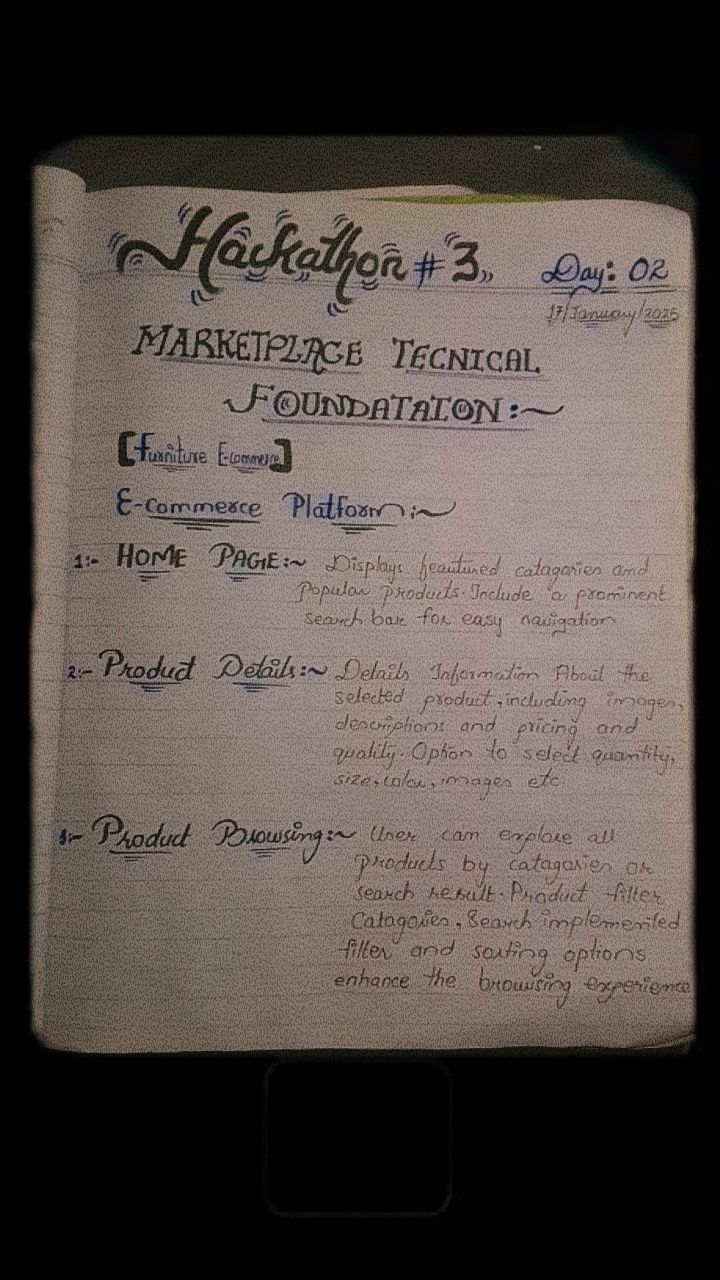 Hackathon # 3 Day: 02
17/January/2025
MARKETPLACE TECNICAL
FOUNDATATION:~
[Furniture E-commerce]
E-commerce Platform:~
1:- HOME PAGE:~ Displays feautured catagories and
Popular products. Include a prominent
search bar for easy navigation
2:- Product Details:~ Details Information About the
selected product, including images,
descriptions and pricing and
quality. Option to select quantity,
size, color, images etc
3:- Product Browsing:~ User can explore all
products by catagories or
search result. Product filter
Catagories, Search implemented
filter and sorting options
enhance the browsing experience